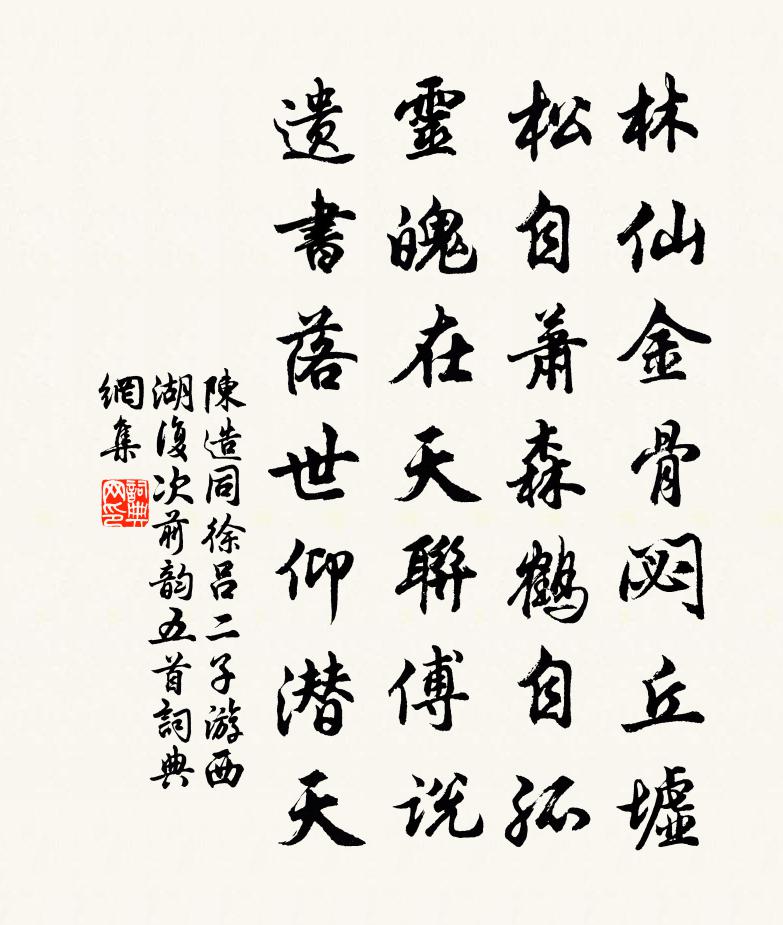 林仙金骨閟丘墟
松自蕭森鶴自孤
靈魄在天聯傅說
遺書落世仰潜天
陳造同徐呂二子游西
湖復次前韵五首詞典
網集
詞典
网印